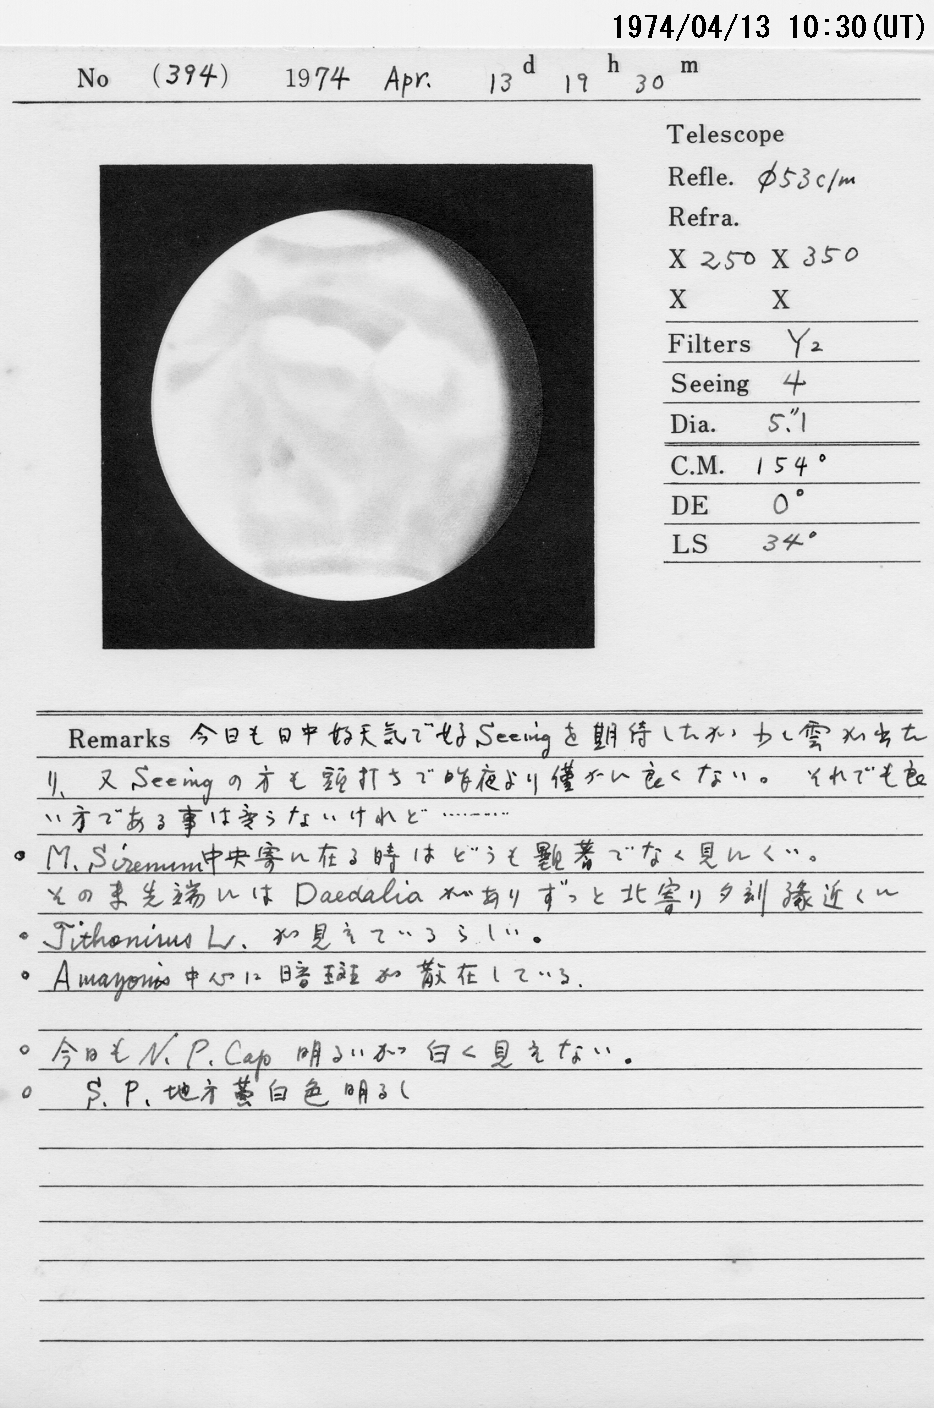 1974/04/13 10:30(UT)
No (394) 1974 Apr. 13d 19h 30m
Telescope
Refle. φ53c/m
Refra.
X 250 X 350
X X
Filters Y2
Seeing 4
Dia. 5."1
C.M. 154°
DE 0°
LS 34°
Remarks 今日も日中好天気で好Seeingを期待したが少し雲が出た
り、又Seeingの方も頭打ちで昨夜より僅かに良くない。それでも良
い方である事は変らないけれど………
• M. Sirenum中央寄に在る時はどうも顕著でなく見にくい。
その東先端にはDaedaliaがありずっと北寄り夕刻縁近くに
• Tithonius L. が見えているらしい。
• Amazonis中心に暗斑が散在している.
○ 今日もN. P. Cap 明るいが白く見えない。
○ S. P. 地方黄白色明るし